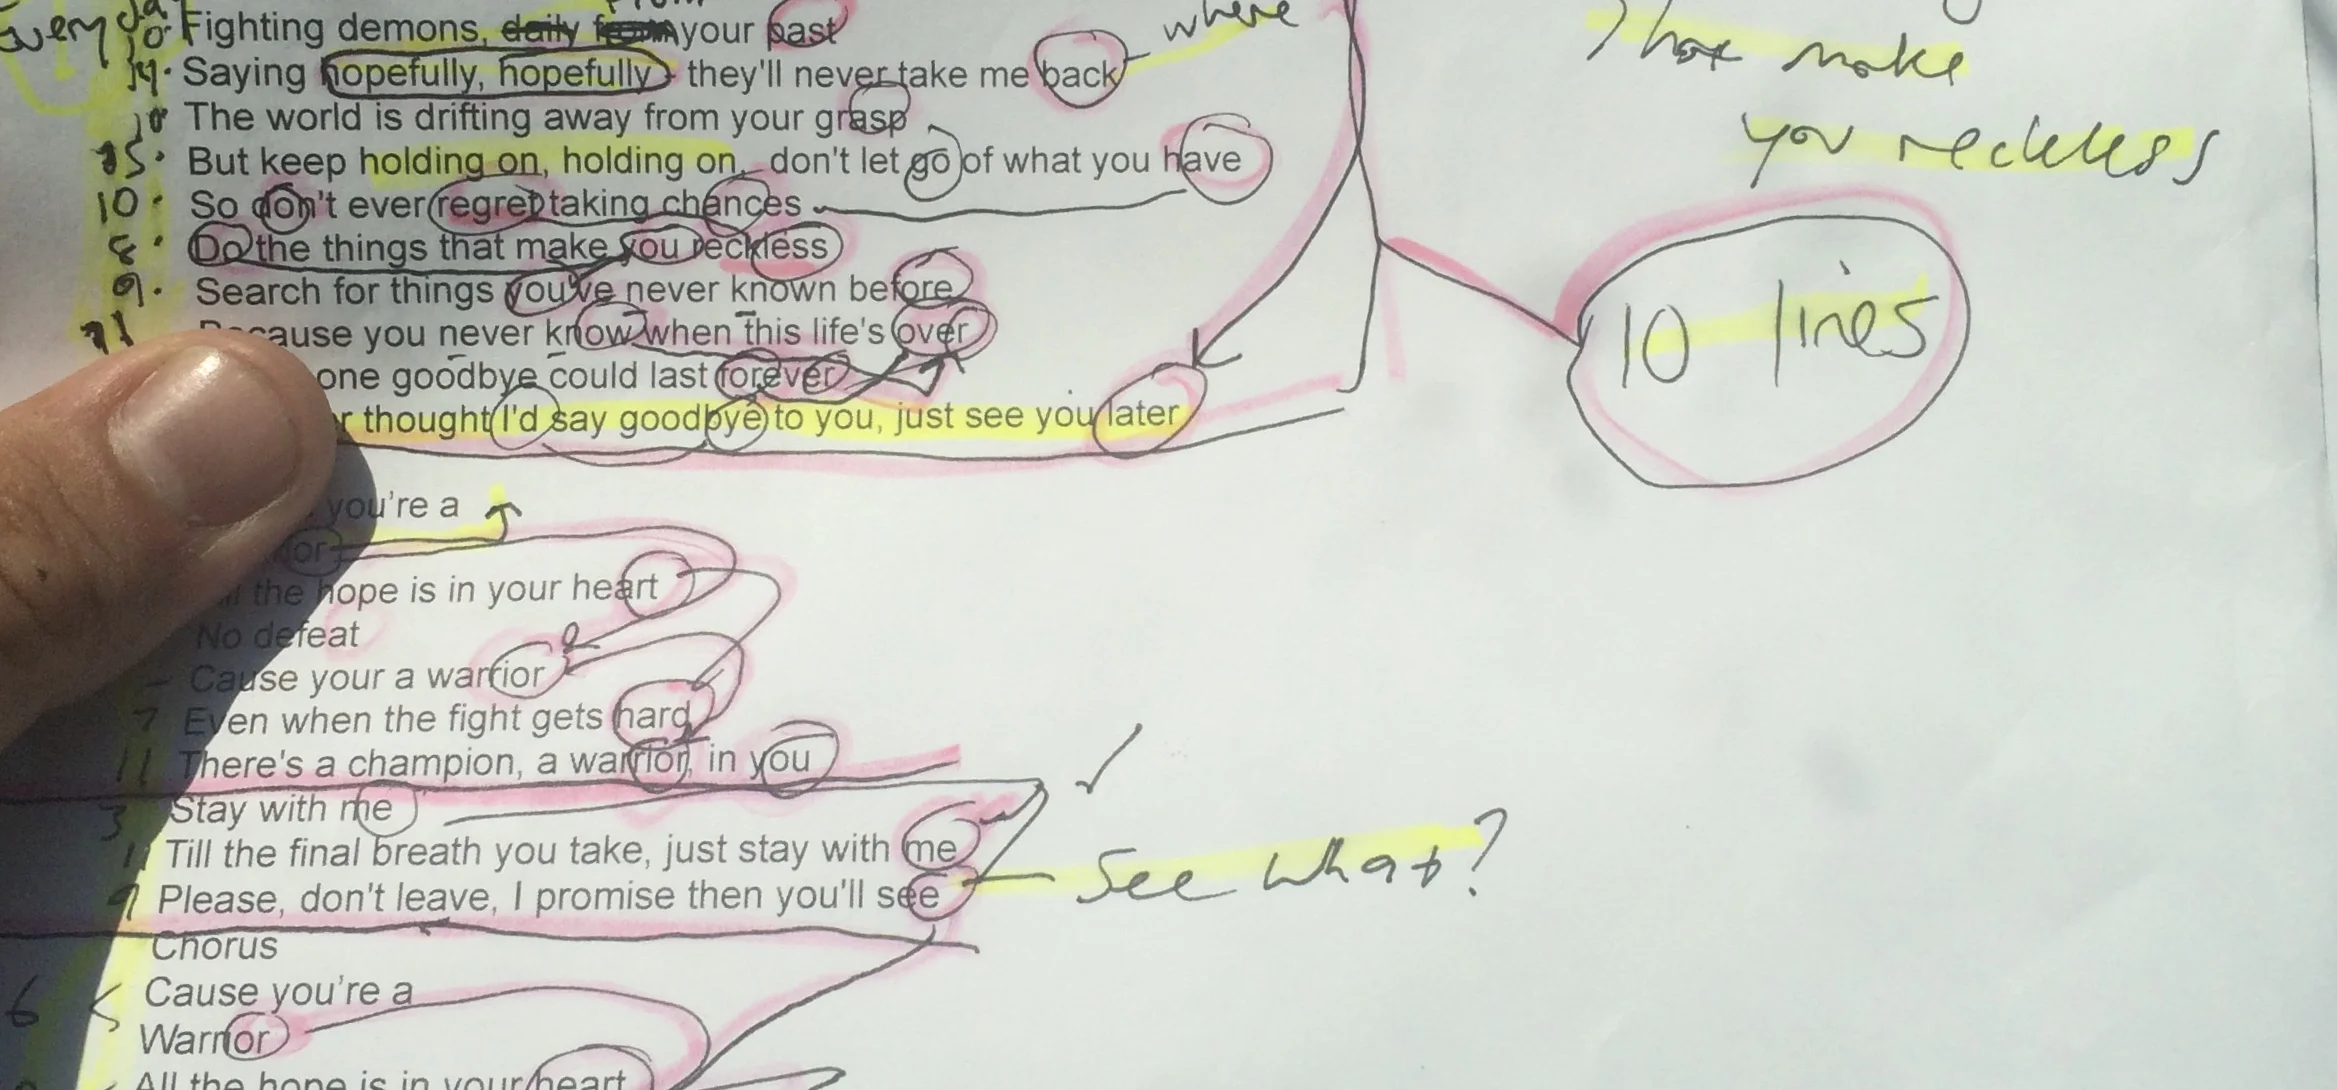 Every da
10. Fighting demons, daily from your past
where
That make
14. Saying hopefully, hopefully they'll never take me back
10 The world is drifting away from your grasp
you reckless
15. But keep holding on, holding on, don't let go of what you have
10. So don't ever regret taking chances
8. Do the things that make you reckless
9. Search for things you've never known before
10 lines
11 Because you never know when this life's over
one goodbye could last forever
thought I'd say goodbye to you, just see you later
you're a
the hope is in your heart
No defeat
Cause your a warrior
7 Even when the fight gets hard
11 There's a champion, a warrior, in you
3 Stay with me
11 Till the final breath you take, just stay with me
See what?
9 Please, don't leave, I promise then you'll see
Chorus
6 < Cause you're a
Warrior
All the hope is in your heart